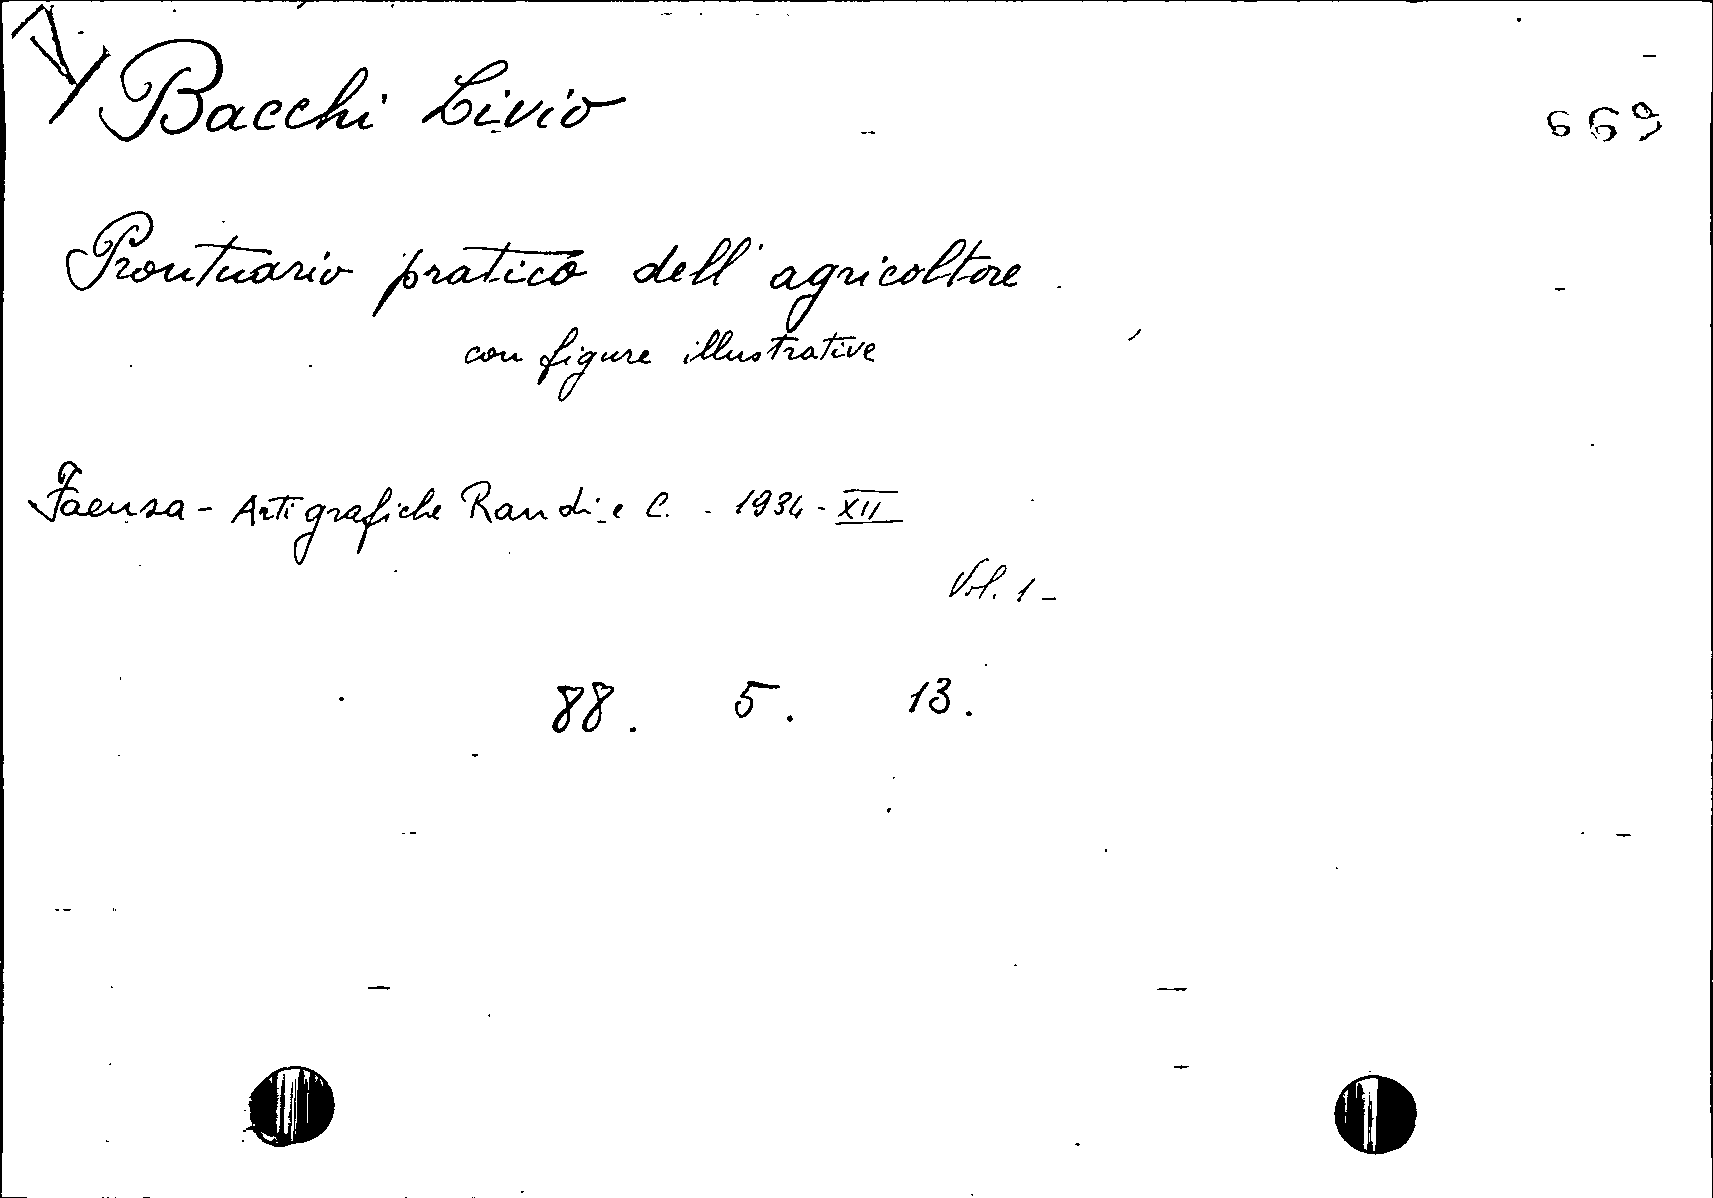 Bacchi Livio
669
Prontuario pratico dell'agricoltore
con figure illustrative
Faenza - Arti grafiche Randi e C. - 1934 - XII
Vol. 1 -
88. 5. 13.